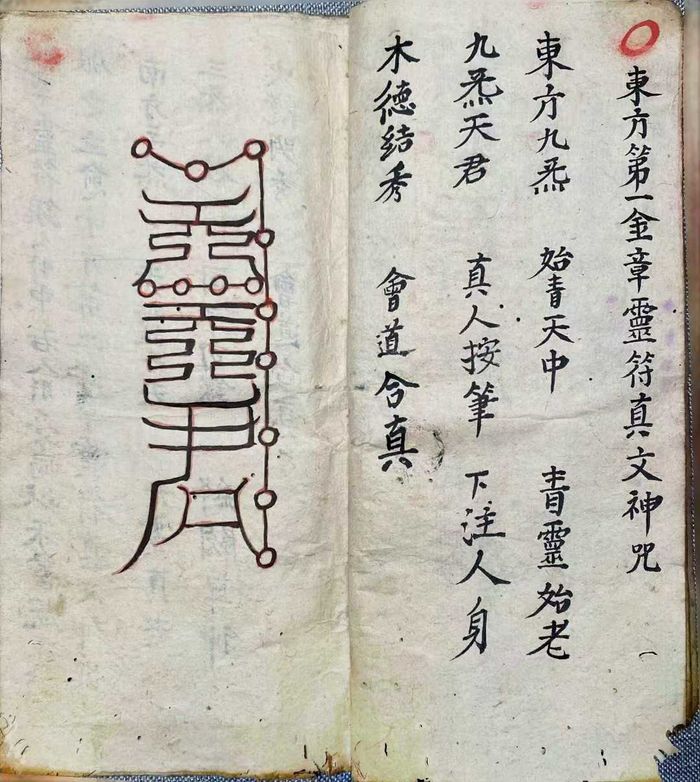 東方第一金章靈符真文神咒
東方九炁 始青天中 青靈始老
九炁天君 真人按筆 下注人身
木德結秀 會道合真